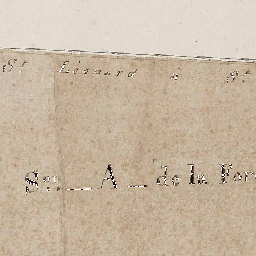 St Lienard à St
Sr. _ A _ de la For